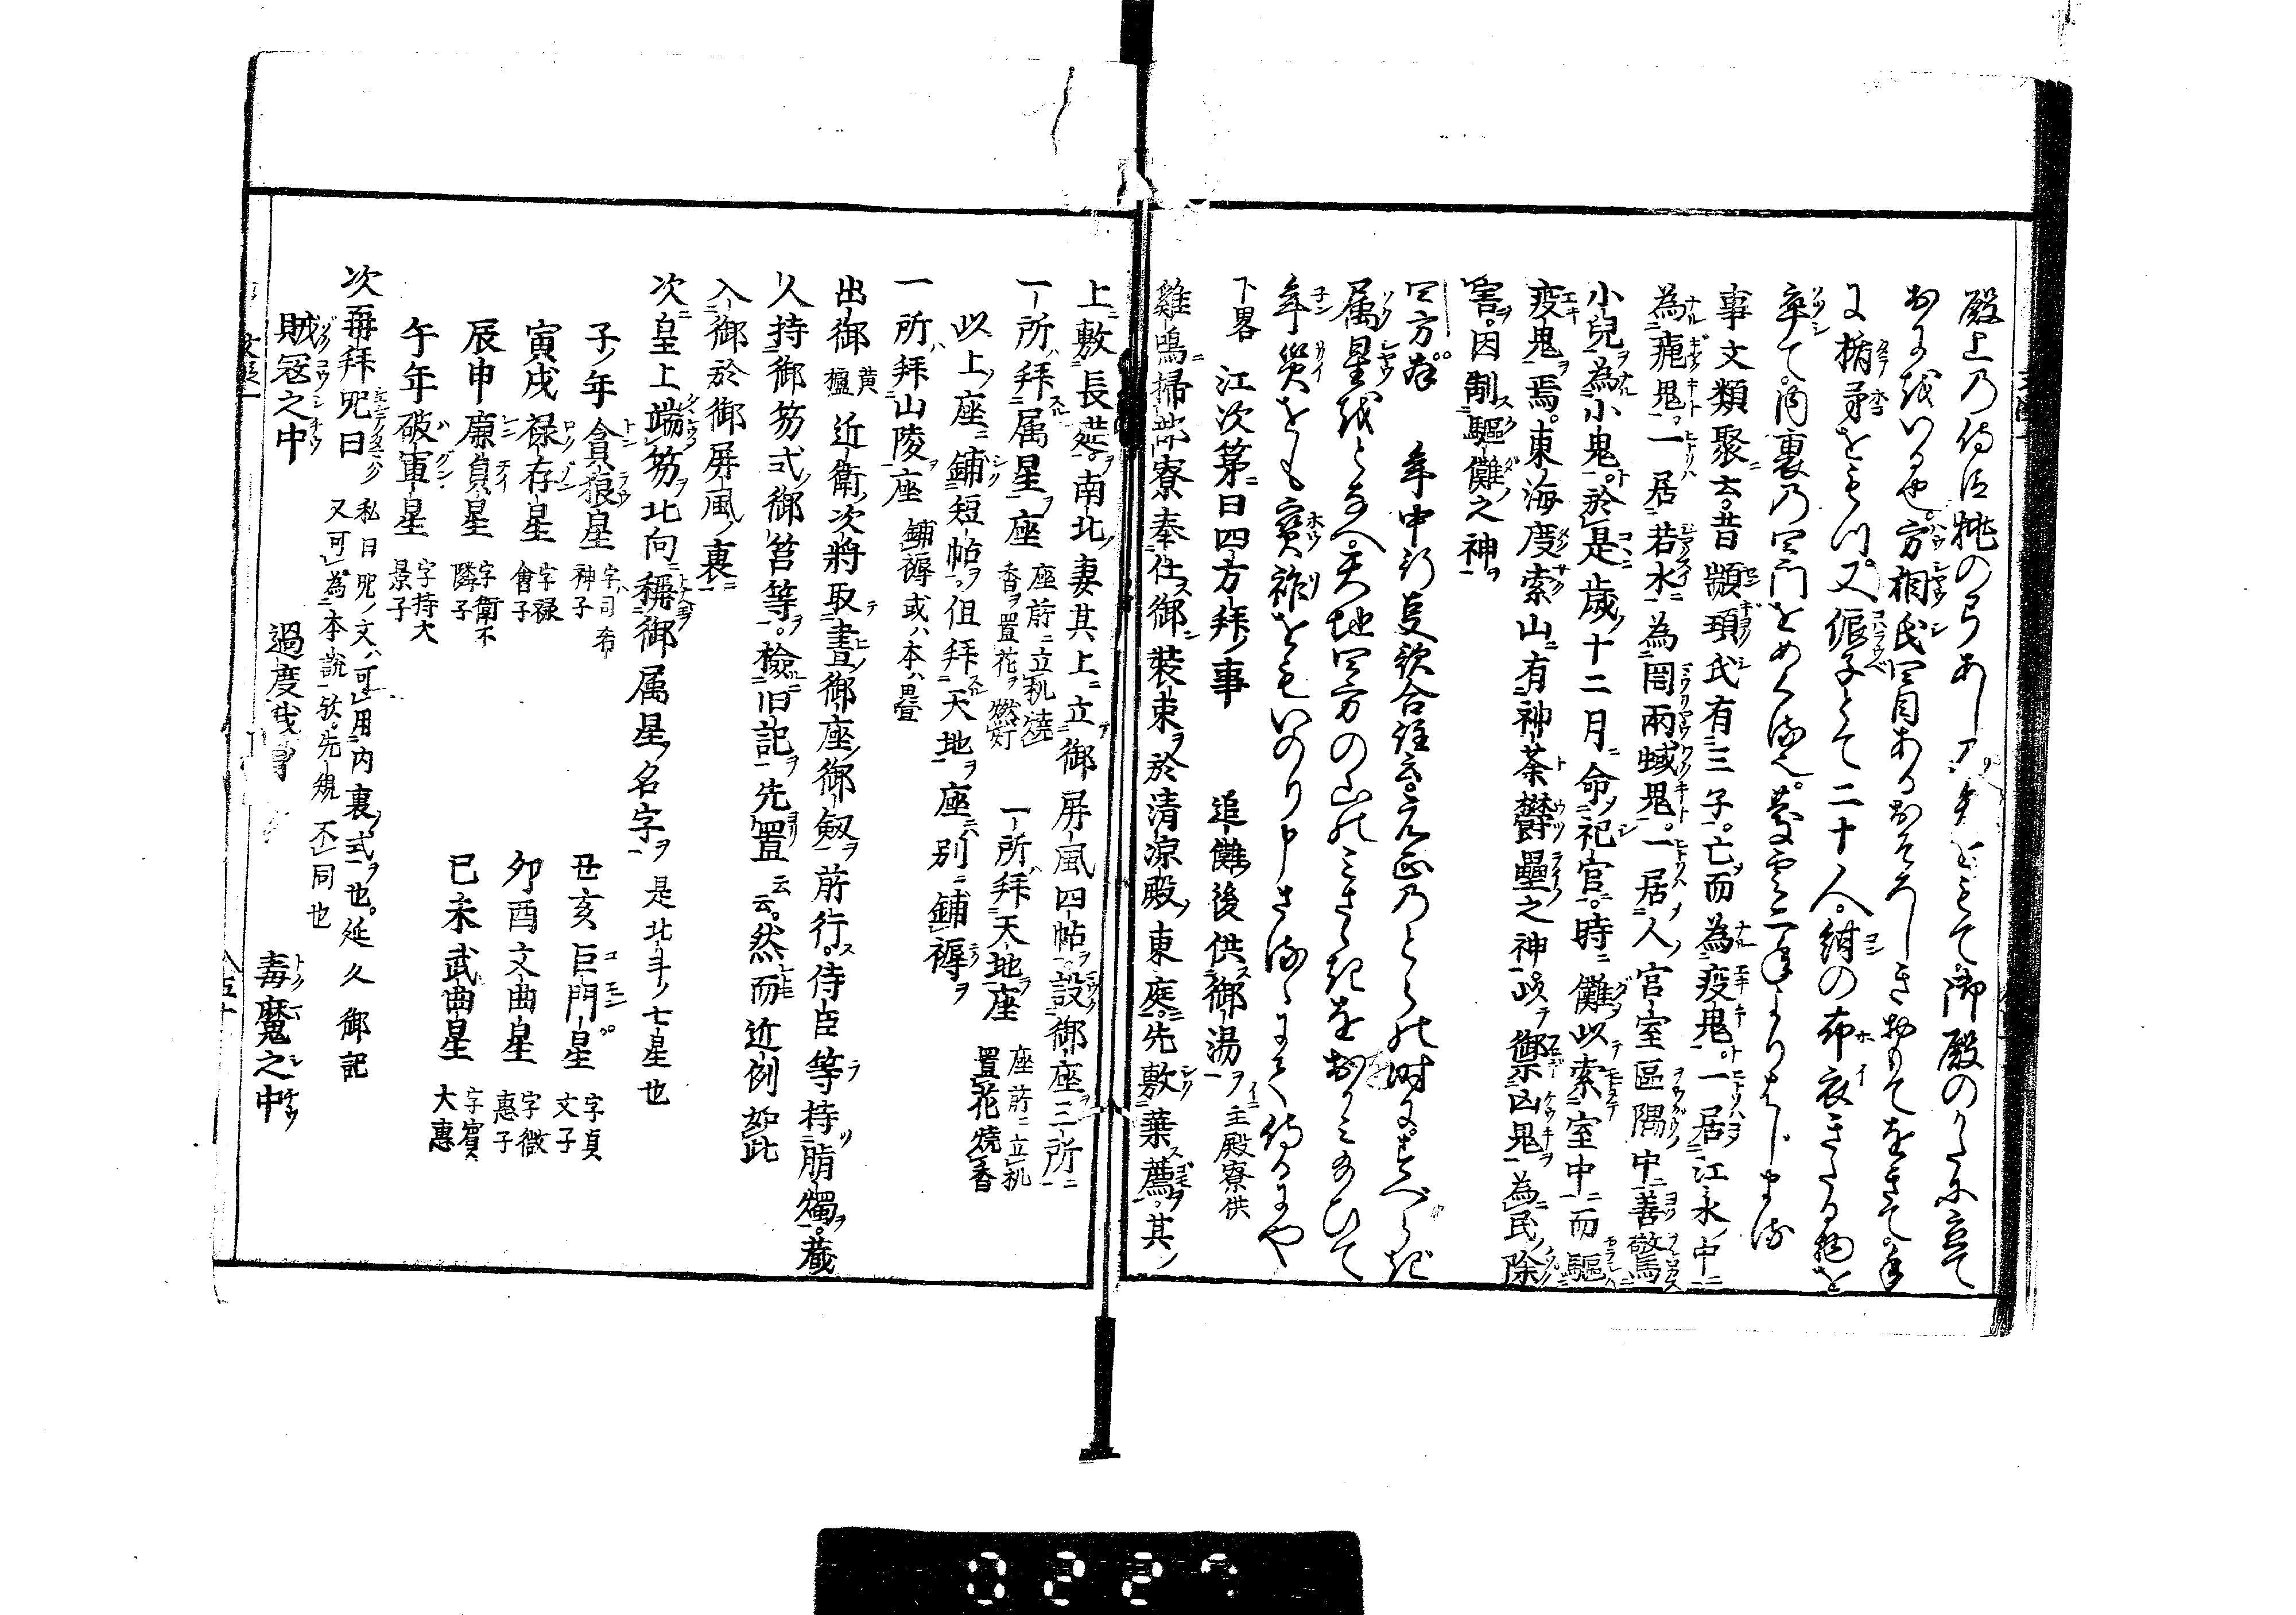 殿上の侍臣桃の弓あしの矢をとりて御殿のかたに立て
おにをいる也方相氏四目あるおそろしき物もてをきて手
に楯矛をもつ又侲子とて二十人紺の布衣きたる物を
率て内裏の四門をめくる也慶雲二年よりはしまる
事文類聚云昔顓頊氏有三子亡而為疫鬼一居江水中
為瘧鬼一居若水為罔兩蜮鬼一居人宮室區隅中善驚
小兒為小鬼於是歳十二月命祀官時儺以索室中而驅
疫鬼焉東海度索山有神荼欝壘之神以禦凶鬼為民除
害因制驅儺之神
四方拜 年中行事歌合註云元正のとらの時にすへらき
属星をとなへ天地四方の山のみさゝきをおかみ給ひて
年災をも寳祚をもいのり申さるゝにて侍るにや
下畧 江次第曰四方拜事 追儺後供御湯主殿寮供
雞鳴掃部寮奉仕御裝束於清凉殿東庭先敷葉薦其
上敷長筵南北妻其上立御屏風四帖設御座三所
一所拜属星座 座前立机燒香置花燃灯 一所拜天地座 座前立机置花燒香
以上座鋪短帖但拜天地座別鋪褥
一所拜山陵座 鋪褥或本疊
出御 黄櫨 近衛次將取晝御座御劔前行侍臣等持脂燭蔵
人持御笏式御筥等檢旧記先置云云然而近例如此
入御於御屏風裏
次皇上端笏北向稱御属星名字是北斗七星也
子年貪狼星 字司希神子 丑亥巨門星 字貞文子
寅戌禄存星 字禄會子 卯酉文曲星 字微惠子
辰申廉貞星 字衛不隣子 巳未武曲星 字賓大惠
午年破軍星 字持大景子
次再拜呪曰 私曰呪文可用内裏式也延久御記
又可為本説欤先規不同也
賊寇之中 過度我身 毒魔之中